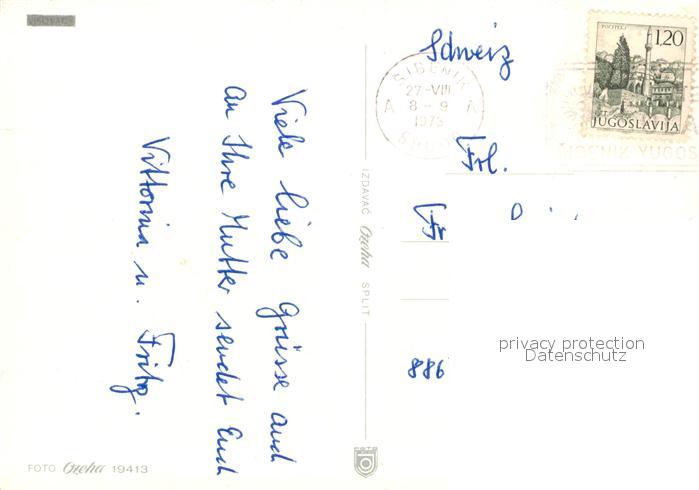 Viele liebe Grüsse auch
an Ihre Mutter sendet Euch
Vittoria u. Fritz.
FOTO Ozeha 19413
IZDAVAČ Ozeha SPLIT
Schweiz
ŠIBENIK
27-VIII
A 8-9 A
1973
POČITELJ
1,20
JUGOSLAVIJA
ŠIBENIK YUGOS
Frl.
Fr
D
886
privacy protection
Datenschutz